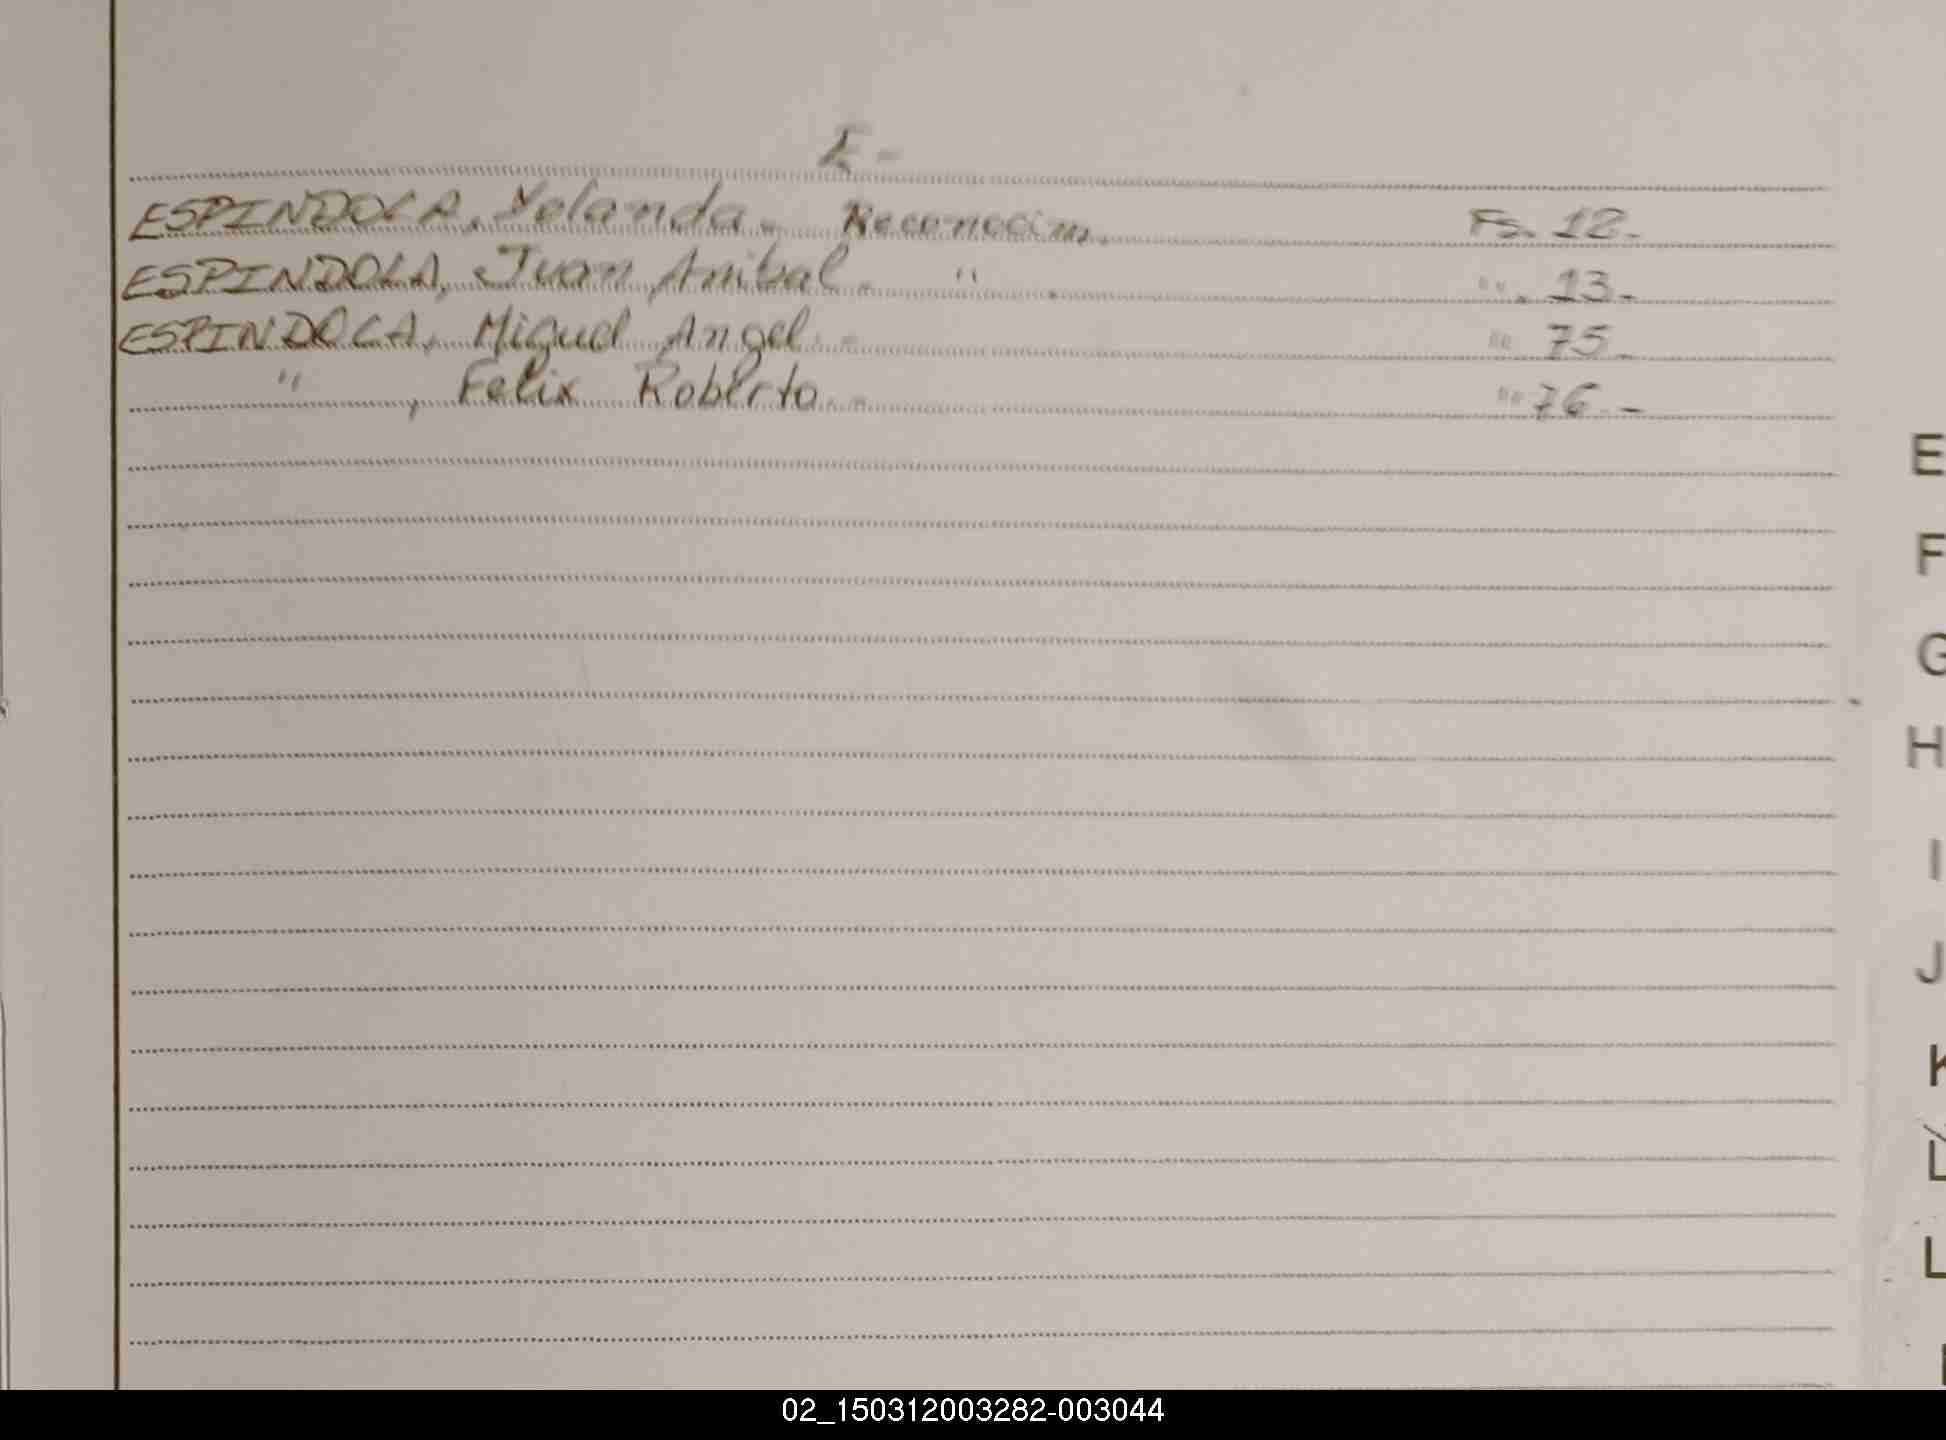 E -
ESPINDOLA, Yolanda. Reconocim. Fs. 12.-
ESPINDOLA, Juan Anibal. " . ". 13.-
ESPINDOLA, Miguel Angel.- " 75.-
" , Felix Roberto.- " 76.-
E
F
G
H
I
J
K
L
L
02_150312003282-003044